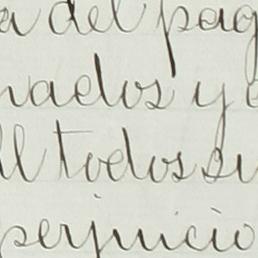 a del pag
nados y
ll todos su
perjuicio